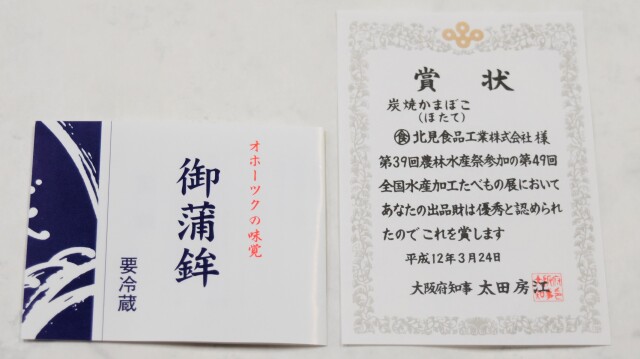 オホーツクの味覚
御蒲鉾
要冷蔵
賞状
炭焼かまぼこ
(ほたて)
食 北見食品工業株式会社 様
第39回農林水産祭参加の第49回
全国水産加工たべもの展において
あなたの出品財は優秀と認められ
たのでこれを賞します
平成12年3月24日
大阪府知事 太田房江